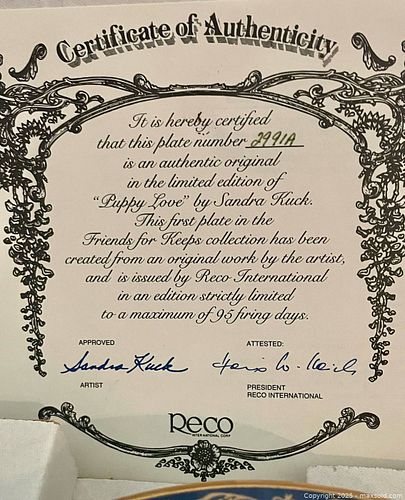 Certificate of Authenticity
It is hereby certified
that this plate number 2991A
is an authentic original
in the limited edition of
"Puppy Love" by Sandra Kuck.
This first plate in the
Friends for Keeps collection has been
created from an original work by the artist,
and is issued by Reco International
in an edition strictly limited
to a maximum of 95 firing days.
APPROVED
ATTESTED:
Sandra Kuck
ARTIST
PRESIDENT
RECO INTERNATIONAL
Reco
INTERNATIONAL CORP
Copyright 2025 - maxsold.com